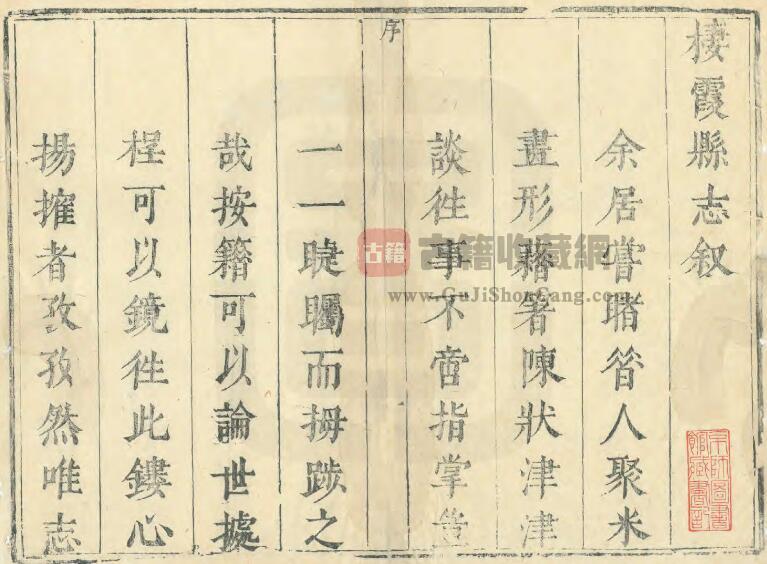 棲霞縣志叙
余居嘗睹昝人聚米
畫形藉箸陳狀津津
談徃事不啻指掌豈
序
一
一一睫矚而拇踄之
哉按籍可以論世據
桯可以鏡徃此鏤心
揚搉者孜孜然唯志
京師圖書
館藏書記
古籍
古籍收藏網
www.GuJiShouCang.com